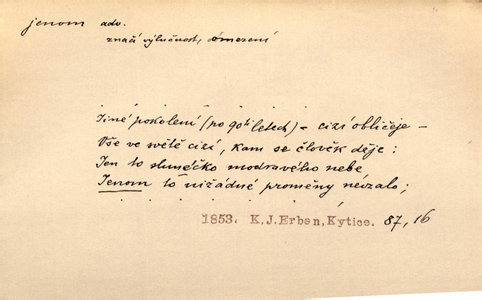 jenom adv.
značí výlučnost, omezení
. . . . . .
Jiné pokolení (po 90ti letech) = cizí obličeje –
Vše ve světě cizí, kam se člověk děje:
Jen to slunéčko modravého nebe
Jenom to nižádné proměny nevzalo;
. . . . . .
1853. K.J.Erben, Kytice. 87, 16